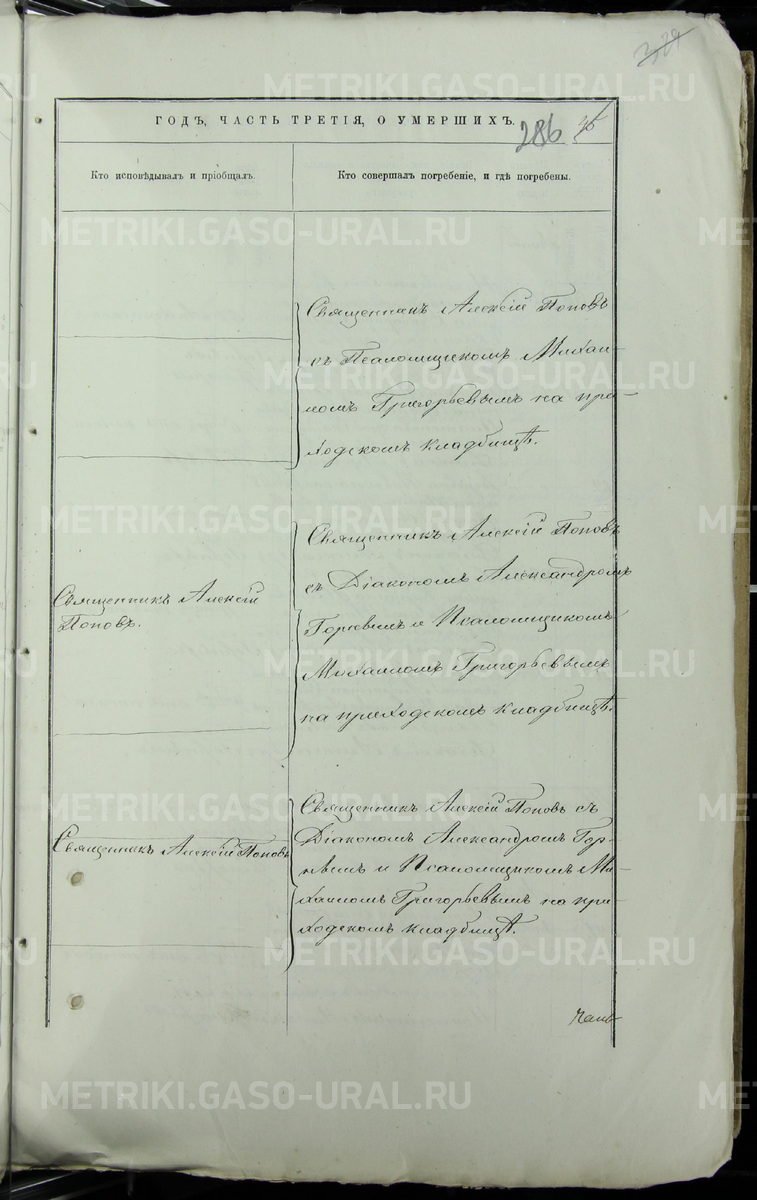 ГОДЪ, ЧАСТЬ ТРЕТІЯ, О УМЕРШИХЪ.
286
Кто исповѣдывалъ и пріобщалъ.
Кто совершалъ погребеніе, и гдѣ погребены.
Священникъ Алексій Поповъ
съ Псаломщикомъ Михаи-
ломъ Григорьевымъ на при-
ходскомъ кладбищѣ.
Священникъ Алексій
Поповъ.
Священникъ Алексій Поповъ
съ Діакономъ Александромъ
и Псаломщикомъ
Михаиломъ Григорьевымъ
на приходскомъ кладбищѣ.
Священникъ Алексій Поповъ
Священникъ Алексій Поповъ съ
Діакономъ Александромъ
и Псаломщикомъ Ми-
хаиломъ Григорьевымъ на при-
ходскомъ кладбищѣ.
METRIKI.GASO-URAL.RU